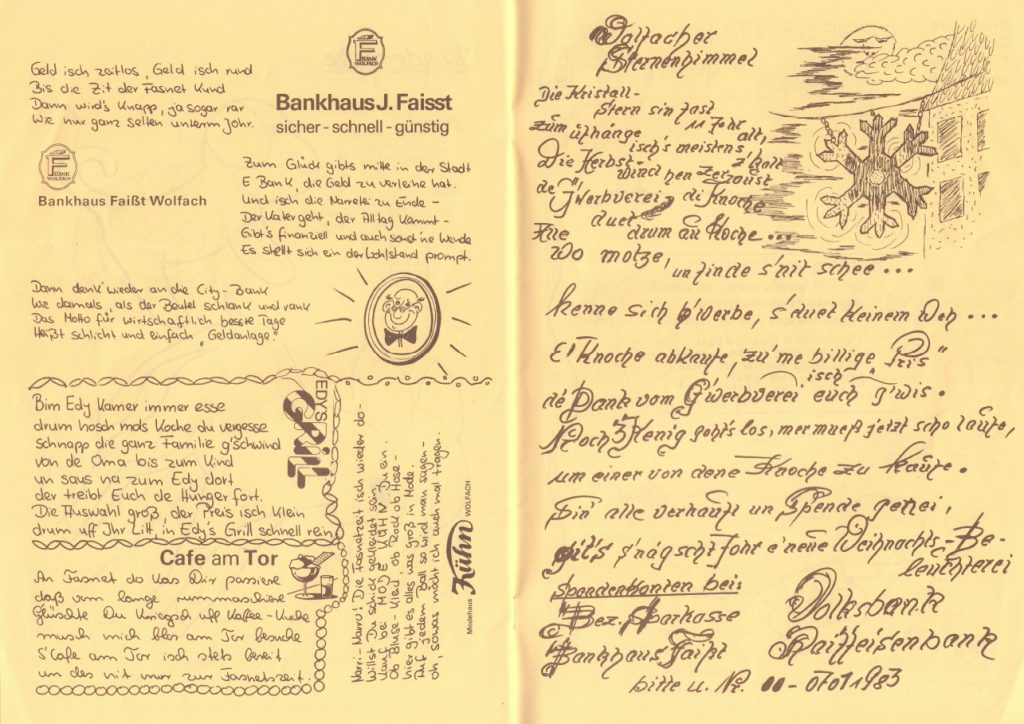 Geld isch zeitlos, Geld isch rund
Bis die Zit der Fasnet kund
Dann wird's knapp, ja sogar rar
Wie nur ganz selten unterm Johr.
F
BANK
WOLFACH
Bankhaus J. Faisst
sicher - schnell - günstig
F
BANK
WOLFACH
Bankhaus Faißt Wolfach
Zum Glück gibts mitte in der Stadt
E Bank, die Geld zu verleihe hat.
Und isch die Narretei zu Ende -
Der Kater geht, der Alltag kommt -
Gibt's finanziell und auch sonst 'ne Wende
Es stellt sich ein der Wohlstand prompt.
Dann denk' wieder an die City-Bank
Wie damals, als der Beutel schlank und rank
Das Motto für wirtschaftlich beste Tage
Heißt schlicht und einfach "Geldanlage."
Bim Edy kamer immer esse
drum hosch mols Koche du vergesse
schnapp die ganz Familie g'schwind
von de Oma bis zum Kind
un saus na zum Edy dort
der treibt Euch de Hunger fort.
Die Auswahl groß, der Preis isch klein
drum uff Ihr Litt, in Edy's Grill schnell rein
EDY'S
GRILL
Cafe am Tor
An Fasnet do kas Dir passiere
daß vom lange rummaschiere
Glüschte Du kriegsch uff Kaffee-Kuche
musch mich blos am Tor besuche
S'Cafe am Tor isch stets bereit
un des nit nur zur Fasnetszeit.
Narri-Narro! Die Fasnetzeit isch wieder do -
Willst Du schick gekleidet sein
Kauf bei MODE KÜHN Du ein.
Ob Bluse - Kleid - ob Rock ob Hose -
hier gibt es alles was groß in Mode.
Auf jedem Ball so wird man sagen -
oh, sowas möcht ich auch mal tragen.
Modehaus Kühn WOLFACH
Wolfacher
Sternenhimmel
Die Kristall-
Stern sin fast
11 Johr alt,
zum ufhänge isch's meistens z'kalt
Die Herbst-
wind hen zerzoust
de G'werbverei di Knoche
duet drum äu Koche ...
Alle
wo motze,
un finde s'nit schee ...
kenne sich b'werbe, s'duet keinem Weh ...
E' Knoche abkaufe, zu'me billige "Pris"
isch
de Dank vom G'werbverei euch g'wis.
Noch 3 Kenig goht's los, mer mueß jetzt scho laufe,
um einer von dene Knoche zu kaufe.
Sin' alle verkauft un Spende genei,
git's s'nägscht Johr e neue Weihnachts-Be-
leuchterei
Spendenkonten bei:
Bez. Sparkasse
Volksbank
Bankhaus Faißt
Raiffeisenbank
bitte u. Nr. 00-07071983